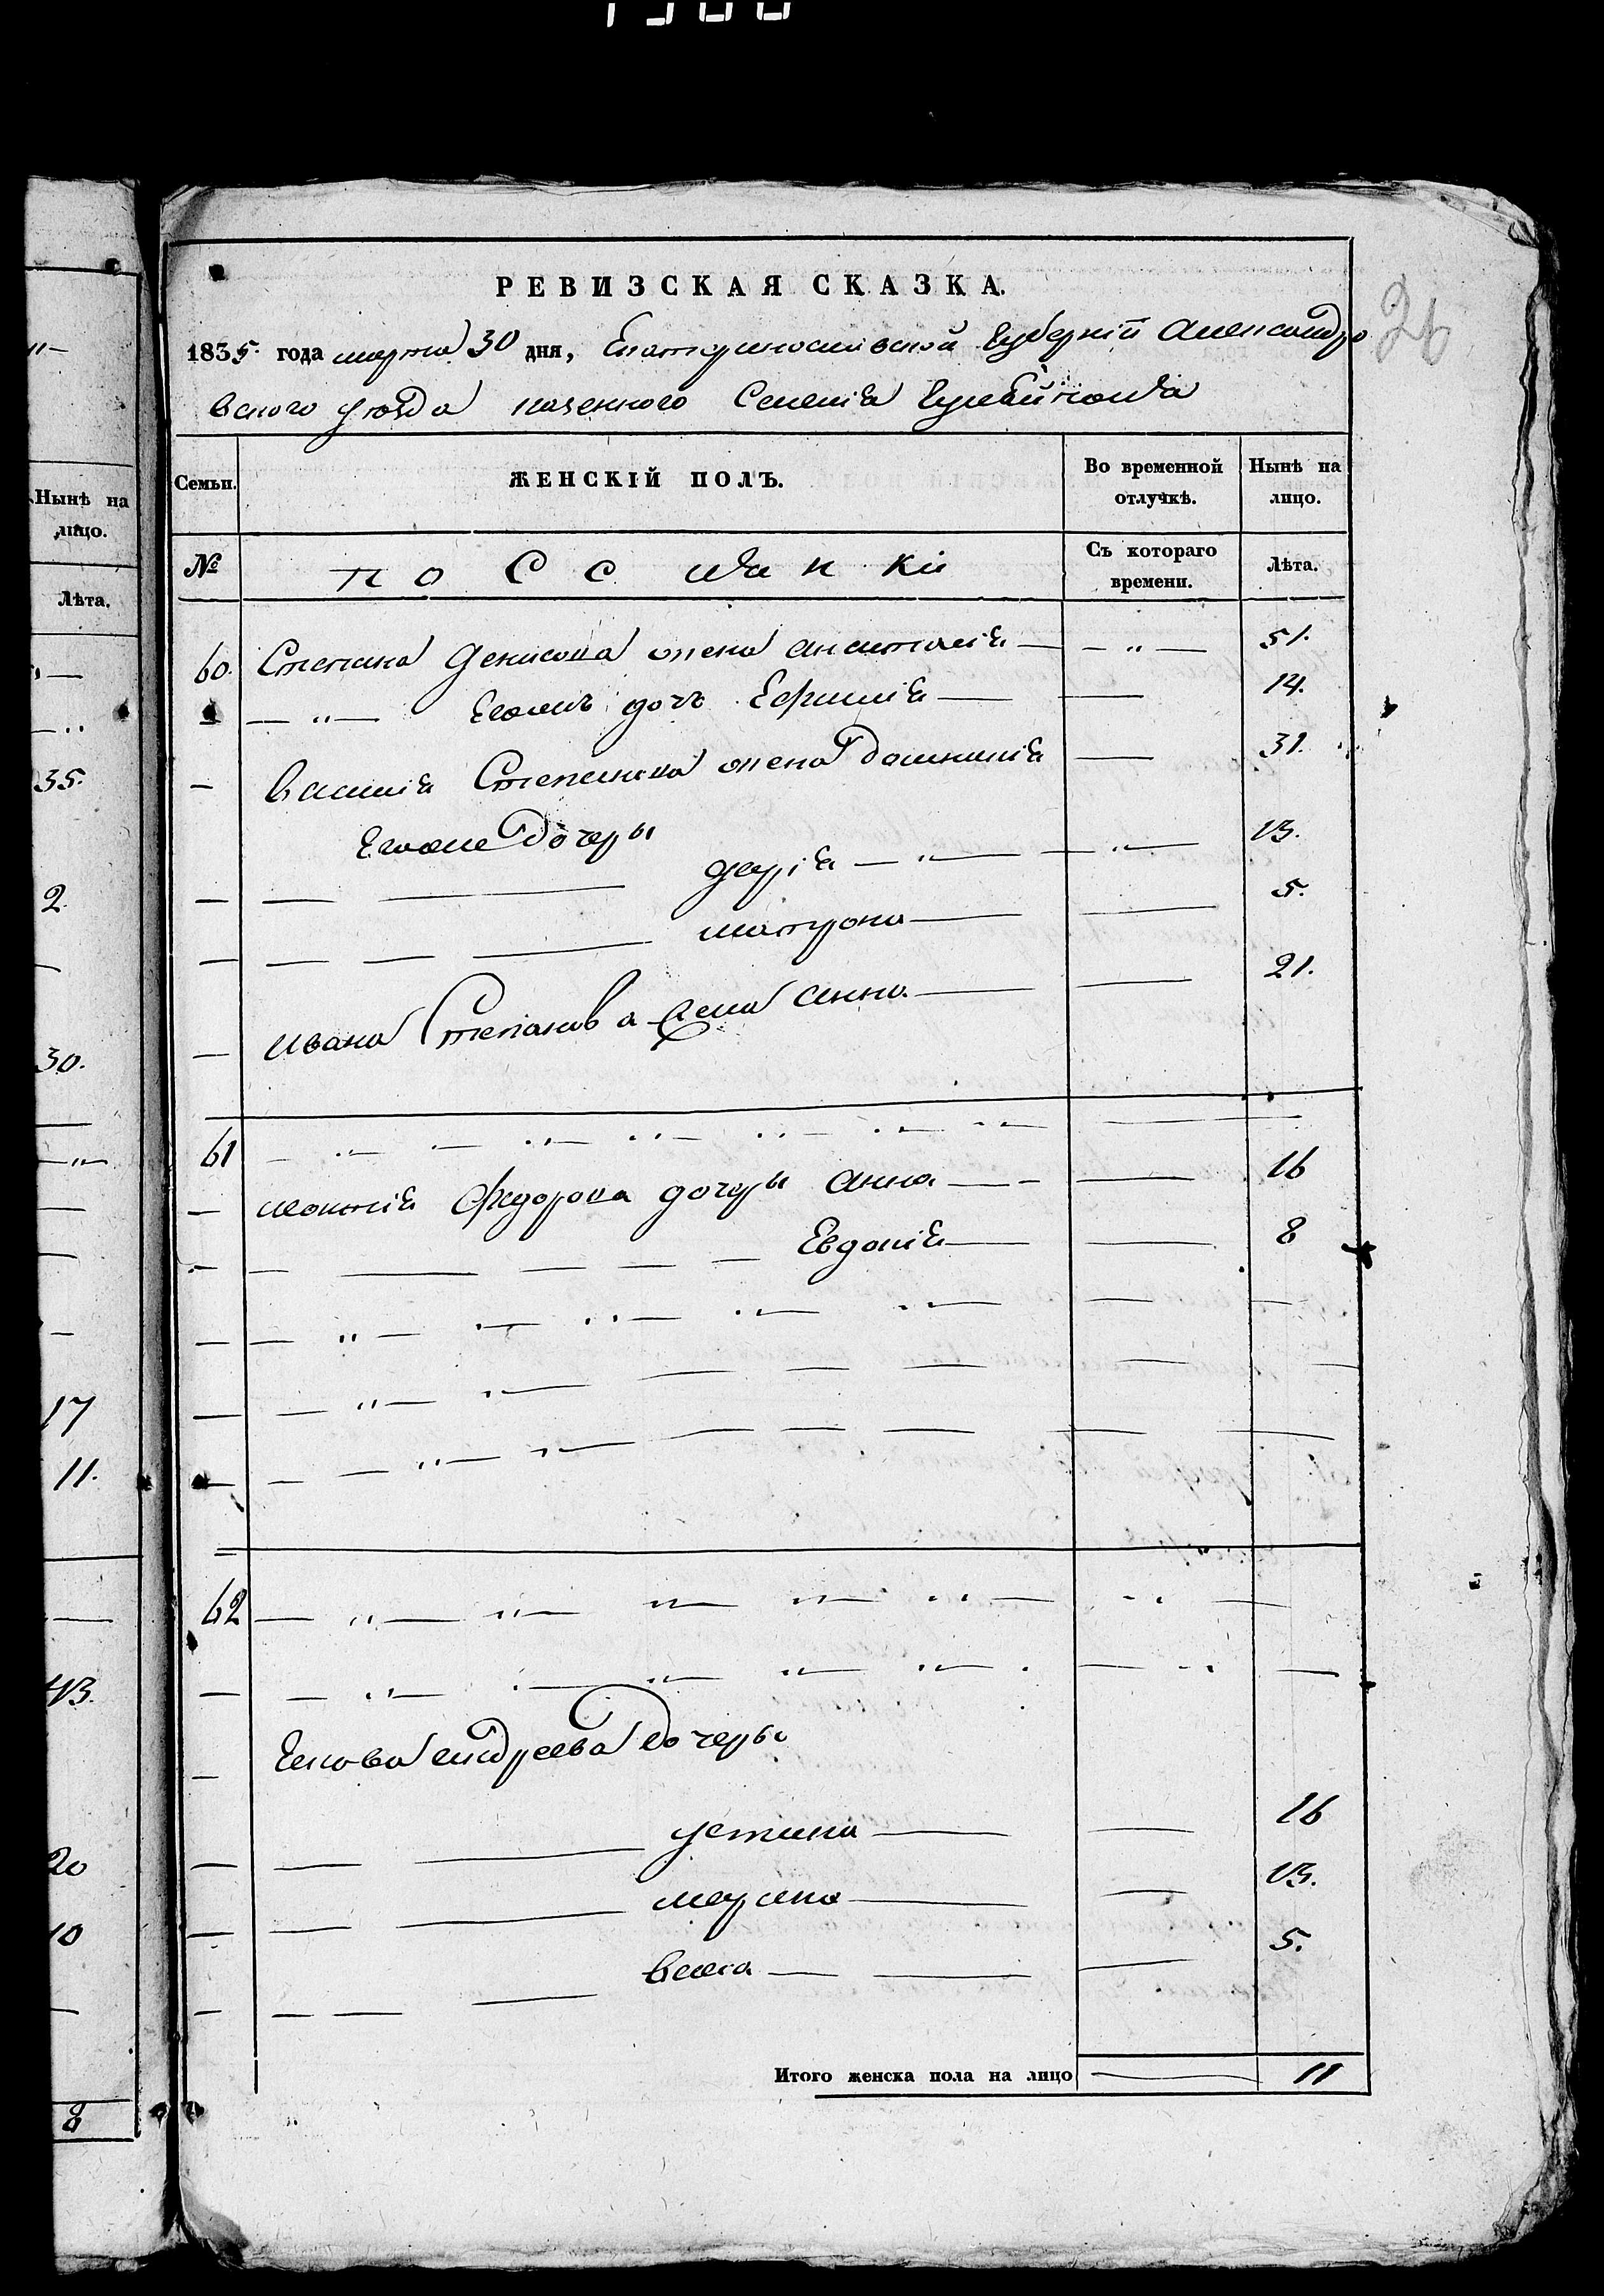 РЕВИЗСКАЯ СКАЗКА.
26
1835 года марта 30 дня, Екатеринославской Губерніи Александро
вского уѣзда казенного Селенія Гуляйполя
Семьи. ЖЕНСКІЙ ПОЛЪ. Во временной отлучкѣ. Нынѣ на лицо.
№ Съ котораго времени. Лѣта.
60. Степана Денисова жена Анастасія — „ — 51.
— „ — Его дочь Ефимія — 14.
— Василія Степанова жена Домникія — 31.
Его дочеры
— Дарія — „ — „ — 13.
— Матрона — 5.
— Ивана Степанова жена Анна — 21.
61 — „ —
— Федорова дочеры Анна — 16
— Евдокія — 8
62 — „ —
— Якова Андреева дочеры
— Устина — 16
— Марина — 13.
— Васса — 5.
Итого женска пола на лицо — 11
Нынѣ на
лицо.
Лѣта.
35.
2.
30.
17
11.
43.
20
10
8